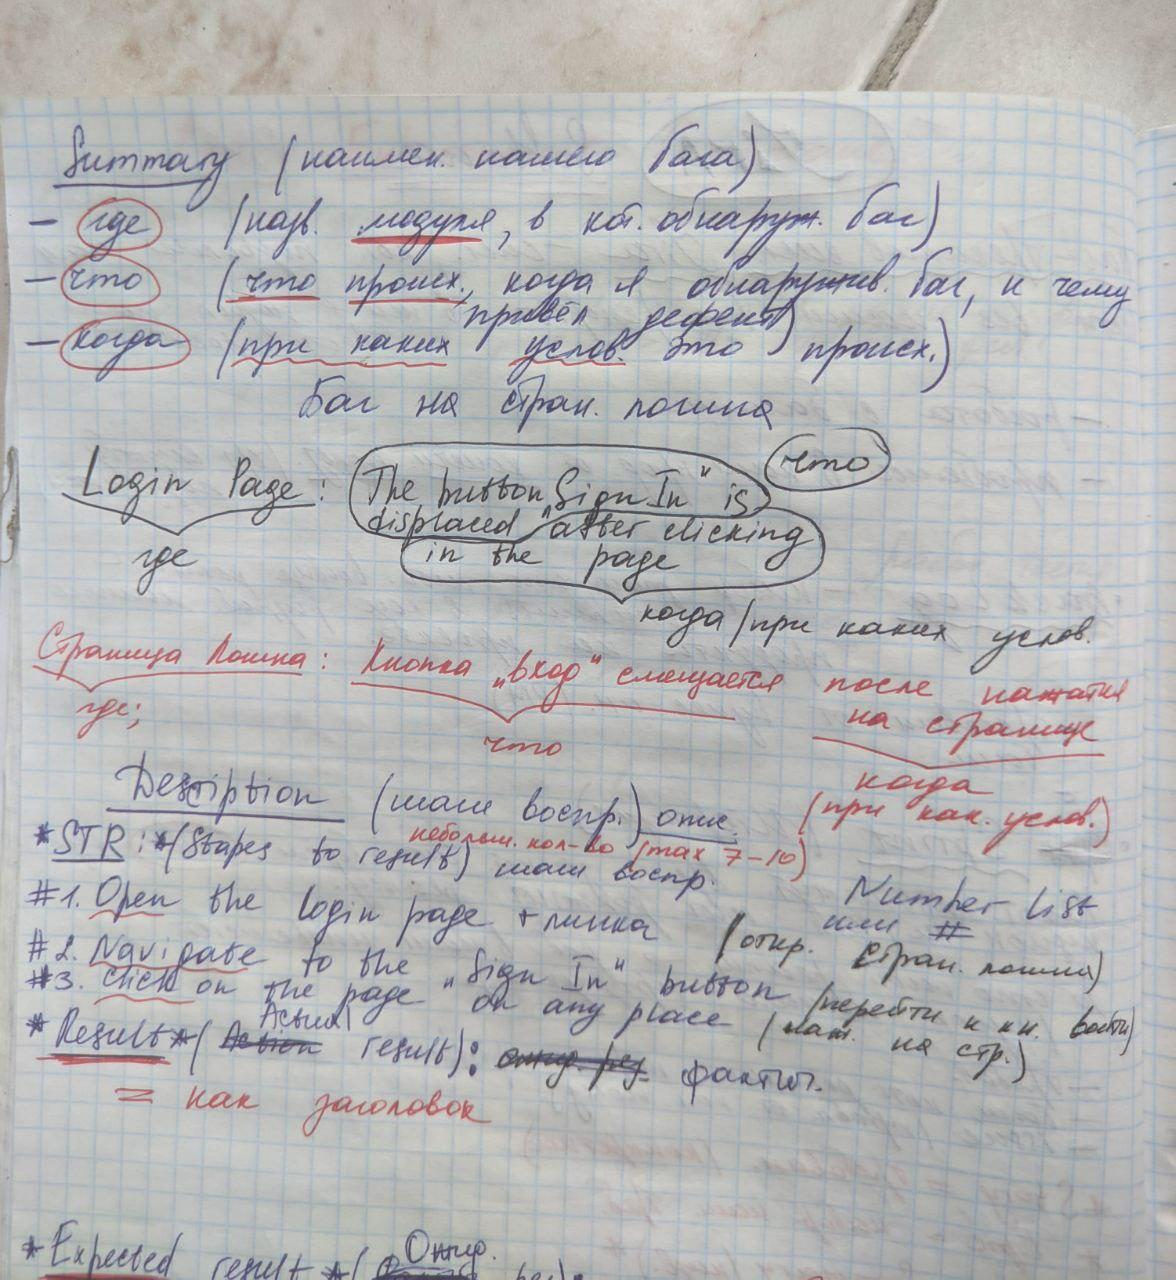 Summary (наимен. нашего бага)
– где (назв. модуля, в кот. обнаруж. баг)
– что (что происх., когда я обнаружив. баг, к чему
привёл дефект)
– когда (при каких услов. это происх.)
Баг на стран. логина
что
Login Page: The button „Sign In" is
displaced after clicking
in the page
где
когда/при каких услов.
Страница Логина: Кнопка „вход" смещается после нажатия
на странице
где;
что
когда
(при как. услов.)
Description (шаги воспр.) опис.
небольш. кол-во (max 7-10)
* STR: *(Stapes to result) шаги воспр.
Number list
или #
#1. Open the login page + линка (откр. стран. логина)
#2. Navigate to the „Sign In" button (перейти к кн. войти)
#3. Click on the page on any place (наж. на стр.)
Actual
* Result * (Action result): ожид. рез. фактич.
= как заголовок
Ожид.
* Expected result * (